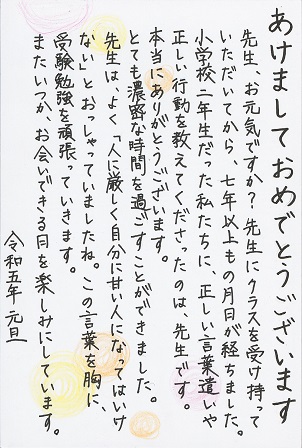 あけましておめでとうございます
先生、お元気ですか？先生にクラスを受け持って
いただいてから、七年以上もの月日が経ちました。
小学校二年生だった私たちに、正しい言葉遣いや
正しい行動を教えてくださったのは、先生です。
本当にありがとうございます。
とても濃密な時間を過ごすことができました。
先生は、よく「人に厳しく自分に甘い人になってはいけ
ない」とおっしゃっていましたね。この言葉を胸に、
受験勉強を頑張っていきます。
またいつか、お会いできる日を楽しみにしています。
令和五年 元旦